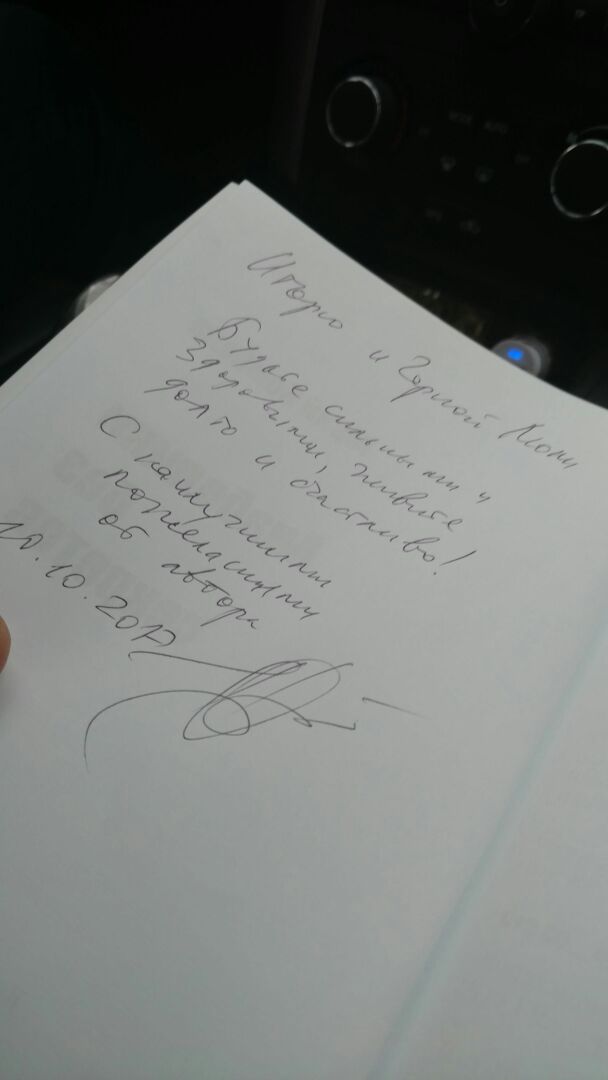 Игорю и Горной Люли
Будьте сильными и
здоровыми, живите
долго и счастливо!
С наилучшими
пожеланиями
от автора
10.10.2017